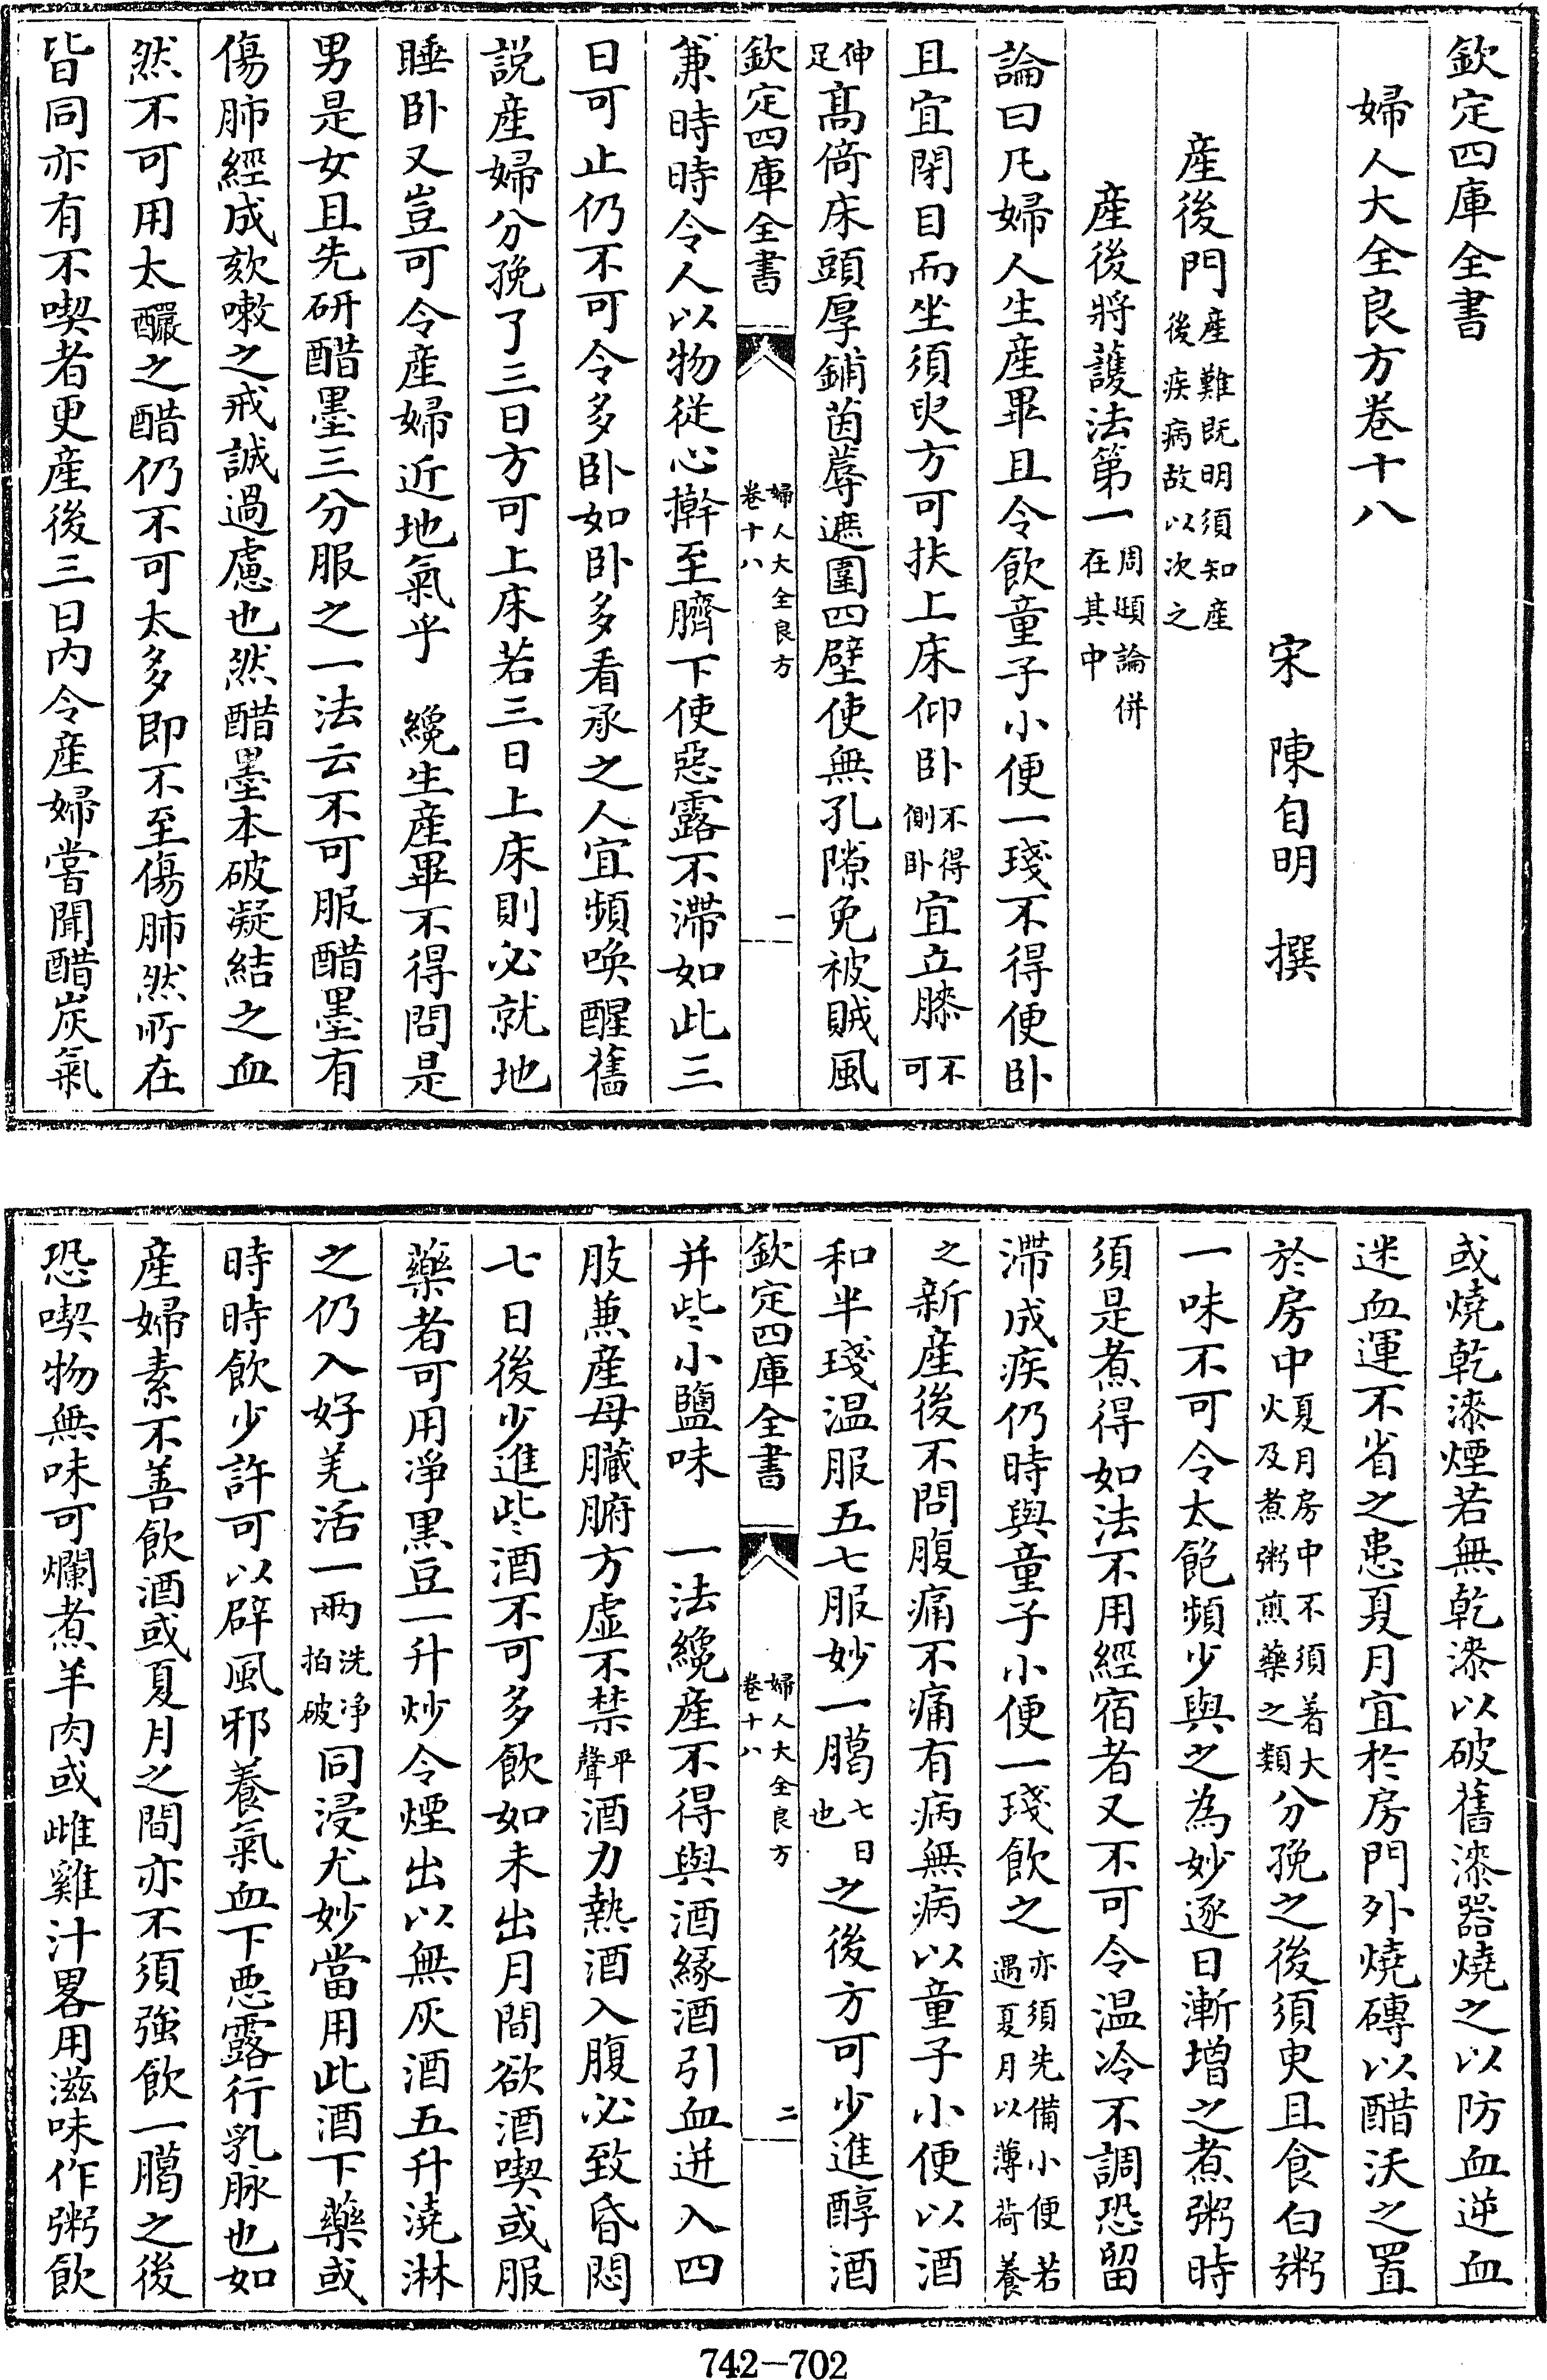 欽定四庫全書
婦人大全良方卷十八
宋 陳自明 撰
産後門産難既明須知産後疾病故以次之
産後將護法第一周頲論併在其中
論曰凡婦人生産畢且令飲童子小便一琖不得便卧
且宜閉目而坐須臾方可扶上床仰卧不得側卧宜立膝不可
伸足髙倚床頭厚鋪茵蓐遮圍四壁使無孔隙免被賊風
欽定四庫全書
婦人大全良方
卷十八
一
兼時時令人以物從心擀至臍下使惡露不滯如此三
日可止仍不可令多卧如卧多看承之人宜頻喚醒舊
説産婦分㝃了三日方可上床若三日上床則必就地
睡卧又豈可令産婦近地氣乎 纔生産畢不得問是
男是女且先研醋墨三分服之一法云不可服醋墨有
傷肺經成欬嗽之戒誠過慮也然醋墨本破凝結之血
然不可用太釅之醋仍不可太多即不至傷肺然所在
皆同亦有不喫者更産後三日内令産婦嘗聞醋炭氣
或燒乾漆煙若無乾漆以破舊漆器燒之以防血逆血
迷血運不省之患夏月宜於房門外燒磚以醋沃之置
於房中夏月房中不須著大火及煮粥煎藥之類分㝃之後須臾且食白粥
一味不可令太飽頻少與之為妙逐日漸增之煮粥時
須是煮得如法不用經宿者又不可令温冷不調恐留
滯成疾仍時與童子小便一琖飲之亦須先備小便若遇夏月以薄荷養
之新産後不問腹痛不痛有病無病以童子小便以酒
和半琖温服五七服妙一臈七日也之後方可少進醇酒
欽定四庫全書
婦人大全良方
卷十八
二
并些小鹽味 一法纔産不得與酒緣酒引血迸入四
肢兼産母臟腑方虚不禁平聲酒力熱酒入腹必致昏悶
七日後少進些酒不可多飲如未出月間欲酒喫或服
藥者可用凈黒豆一升炒令煙出以無灰酒五升澆淋
之仍入好羌活一兩洗净拍破同浸尤妙當用此酒下藥或
時時飲少許可以辟風邪養氣血下惡露行乳脉也如
産婦素不善飲酒或夏月之間亦不須強飲一臈之後
恐喫物無味可爛煮羊肉或雌雞汁畧用滋味作粥飲
742-702